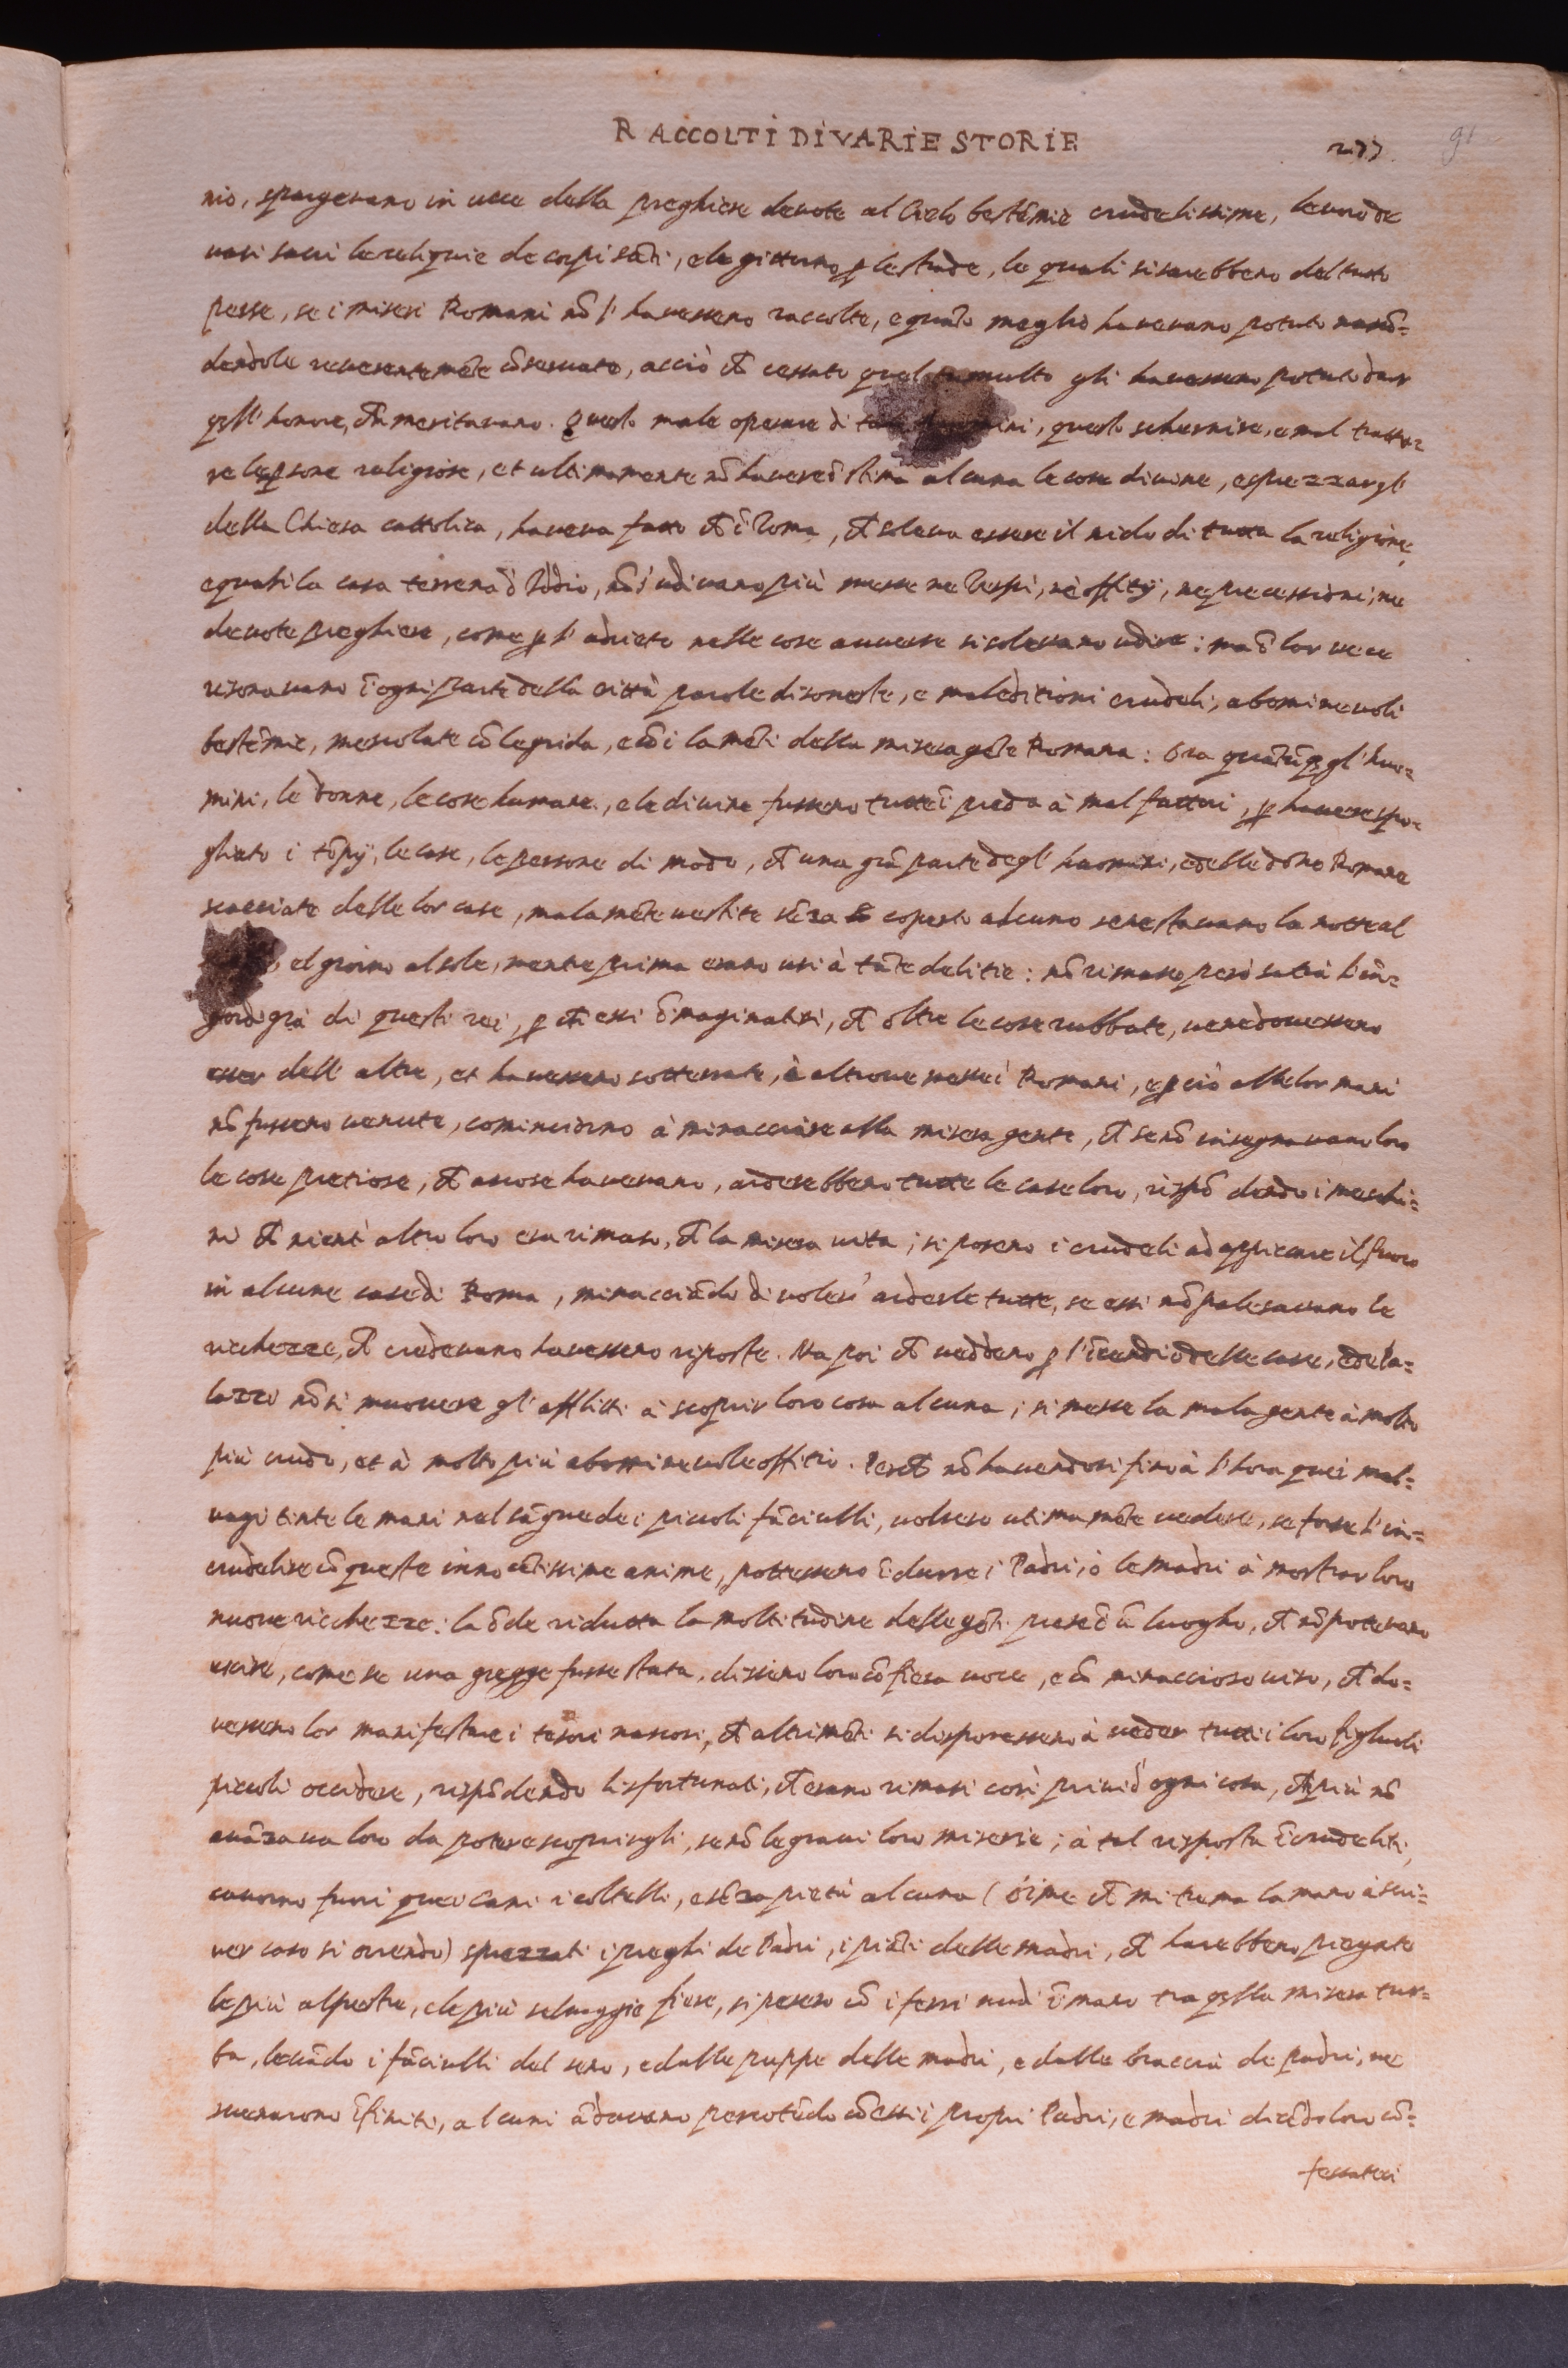 RACCOLTI DI VARIE STORIE 277. 91
nio, spargevano in vece della preghiere devote al Cielo bestẽmie crudelissime, levorno de
vasi sacri le reliquie de corpi sãti, e le gitturno ꝑ le strade, le quali si sarebbero del tutto
perse, se i miseri Romani nõ l' havessero raccolte, e quãto meglio havevano potuto nascõ=
dendole reverentemẽte cõservate, acciò che cessato quel tumulto gli havessero potuto dar
quell' honore, che meritavano. Questo male operare di, questo schernire, e mal tratta=
re le ꝑsone religiose, et ultimamente nõ havere ĩ stima alcuna le cose divine, e sprezzar gl'
della Chiesa cattolica, haveva fatto che ĩ Roma, che soleva essere il nido di tutta la religione,
e quasi la casa terrena d' Iddio, nõ s' udivano più messe ne Vespri, nè offitij, ne precessioni, ne
devote preghiere, come ꝑ l' adrieto nelle cose avverse si solevano udire: ma ĩ lor vece
risonavano ĩ ogni parte della città parole disoneste, e maleditioni crudeli, abominevoli
bestẽmie, mescolate cõ le grida, e cõ i lamẽti della misera gẽte Romana: Ora quãtũque gl' huo=
mini, le donne, le cose humane, e le divine fussero tutte ĩ preda à mal fattori, ꝑ havere spo=
gliato i tẽpij, le case, le persone di modo, che una grã parte degl' huomini, e delle dõne Romane
scacciate delle lor case, malamẽte vestite sẽza coperto alcuno se ne stavano la notte al
el giorno al sole, mentre prima erano usi à tãte delitie: nõ rimase però satia l' ĩn=
gordigia di questi rei, ꝑ che essi ĩmaginatisi, che oltre le cose rubbate, ve ne dovessero
esser dell' altre, et havessero sotterrate, ò altrove messe i Romani, e ꝑ ciò alle lor mani
nõ fussero venute, cominciorno à minacciare alla misera gente, che se nõ insegnavano loro
le cose pretiose, che ascose havevano, arderebbero tutte le case loro, rispõ dendo i meschi=
ni che nient' altro loro era rimaso, che la misera vita; si posero i crudeli ad appiccare il fuoco
in alcune case di Roma, minacciãdo di voler' arderle tutte, se essi nõ palesavano le
ricchezze, che credevano havessero riposte. Ma poi che veddero ꝑ l' ĩcendio delle case, e de Pa=
lazzi nõ si muovere gl' afflitti à scoprir loro cosa alcuna; si messe la mala gente à molto
più crudo, et à molto più abominevole offitio. Perchè nõ havendosi fino à l' hora quei mal=
vagi tinte le mani nel sãgue de i piccoli fãciulli, volsero ultimamẽte vedere, se forse l' in=
crudelire cõ queste innocẽtissime anime, potessero ĩdurre i Padri, ò le madri à mostrar loro
nuove ricchezze: la õde ridutta la moltitudine delle gẽti prese ĩ ũ luogho, che nõ potevano
uscire, come se una gregge fusse stata, dissero loro cõ fiera voce, e cõ minaccioso viso, che do=
vessero lor manifestare i tesori nascosi, che altrimẽti si disponessero à veder tutti i loro figliuoli
piccoli occidere, rispõdendo li sfortunati, che erano rimasi così privi d' ogni cosa, che più nõ
avãzava loro da potere scoprirgli, se nõ le gravi loro miserie; à tal risposta ĩcrudeliti,
cavorno fuori quei cani i coltelli, e sẽza pietà alcuna (òime che mi trema la mano à scri=
ver caso sì orrendo) sprezzati i preghi de Padri, i piãti delle madri, che harebbero piegate
le più alpestre, e le più selvaggie fiere, si posero cõ i ferri nudi ĩ mano tra quella misera tur=
ba, levãdo i fãciulli del seno, e dalle puppe delle madri, e dalle braccia de padri, ne
svenarono ĩfiniti, alcuni ãdavano percotẽdo cõ essi i propri Padri, e madri dicẽdo loro cõ=
fessateci